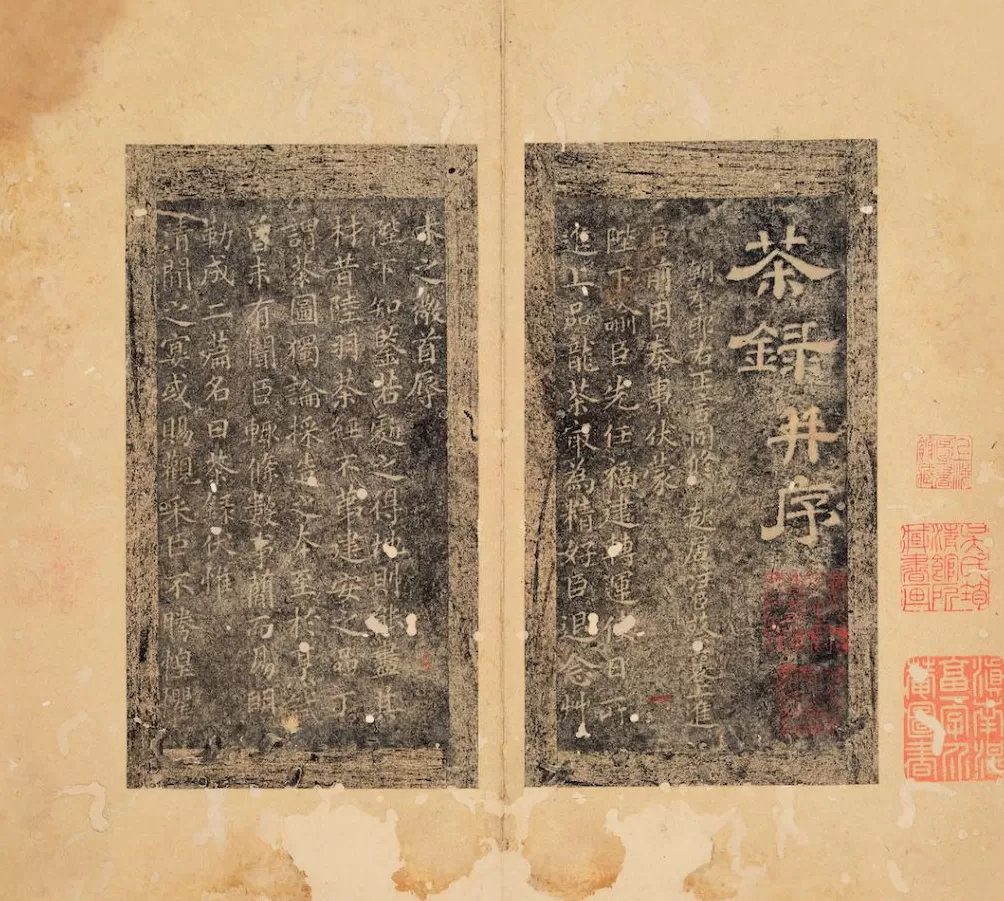 茶録并序
朝奉郎右正言同修起居注臣蔡襄上進
臣前因奏事伏蒙
陛下諭臣先任福建轉運使日所
進上品龍茶㝡為精好臣退念艸
木之微首辱
陛下知鑒若處之得地則能盡其
材昔陸羽茶經不第建安之品丁
謂茶圖獨論採造之本至於烹試
曾未有聞臣輙條數事簡而易明
勒成二篇名曰茶録伏惟
清閒之宴或賜觀采臣不勝惶懼